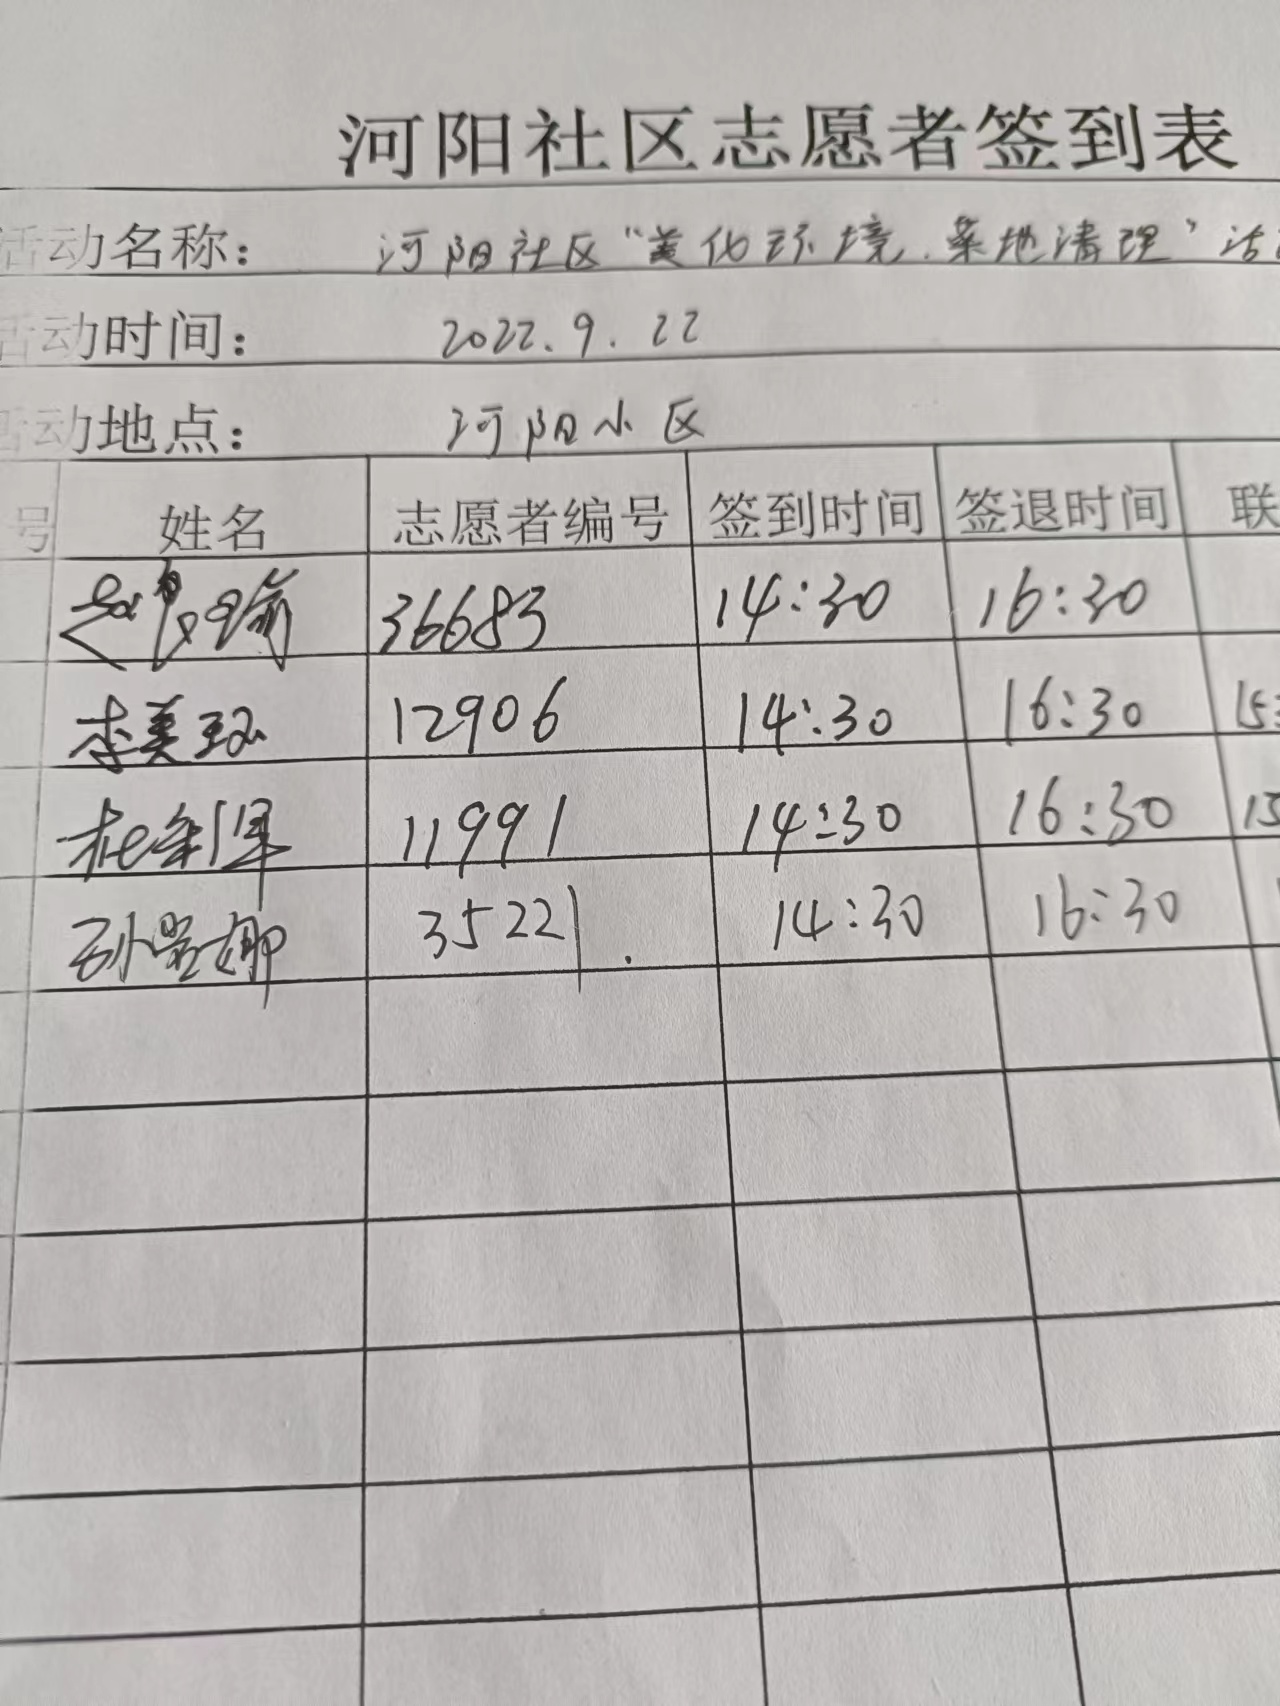 河阳社区志愿者签到表
活动名称： 河阳社区“美化环境.菜地清理”活
活动时间： 2022.9.22
活动地点： 河阳小区
号 姓名 志愿者编号 签到时间 签退时间 联
36683 14:30 16:30
李美玲 12906 14:30 16:30 15
11991 14:30 16:30 15
孙雪娜 35221 14:30 16:30